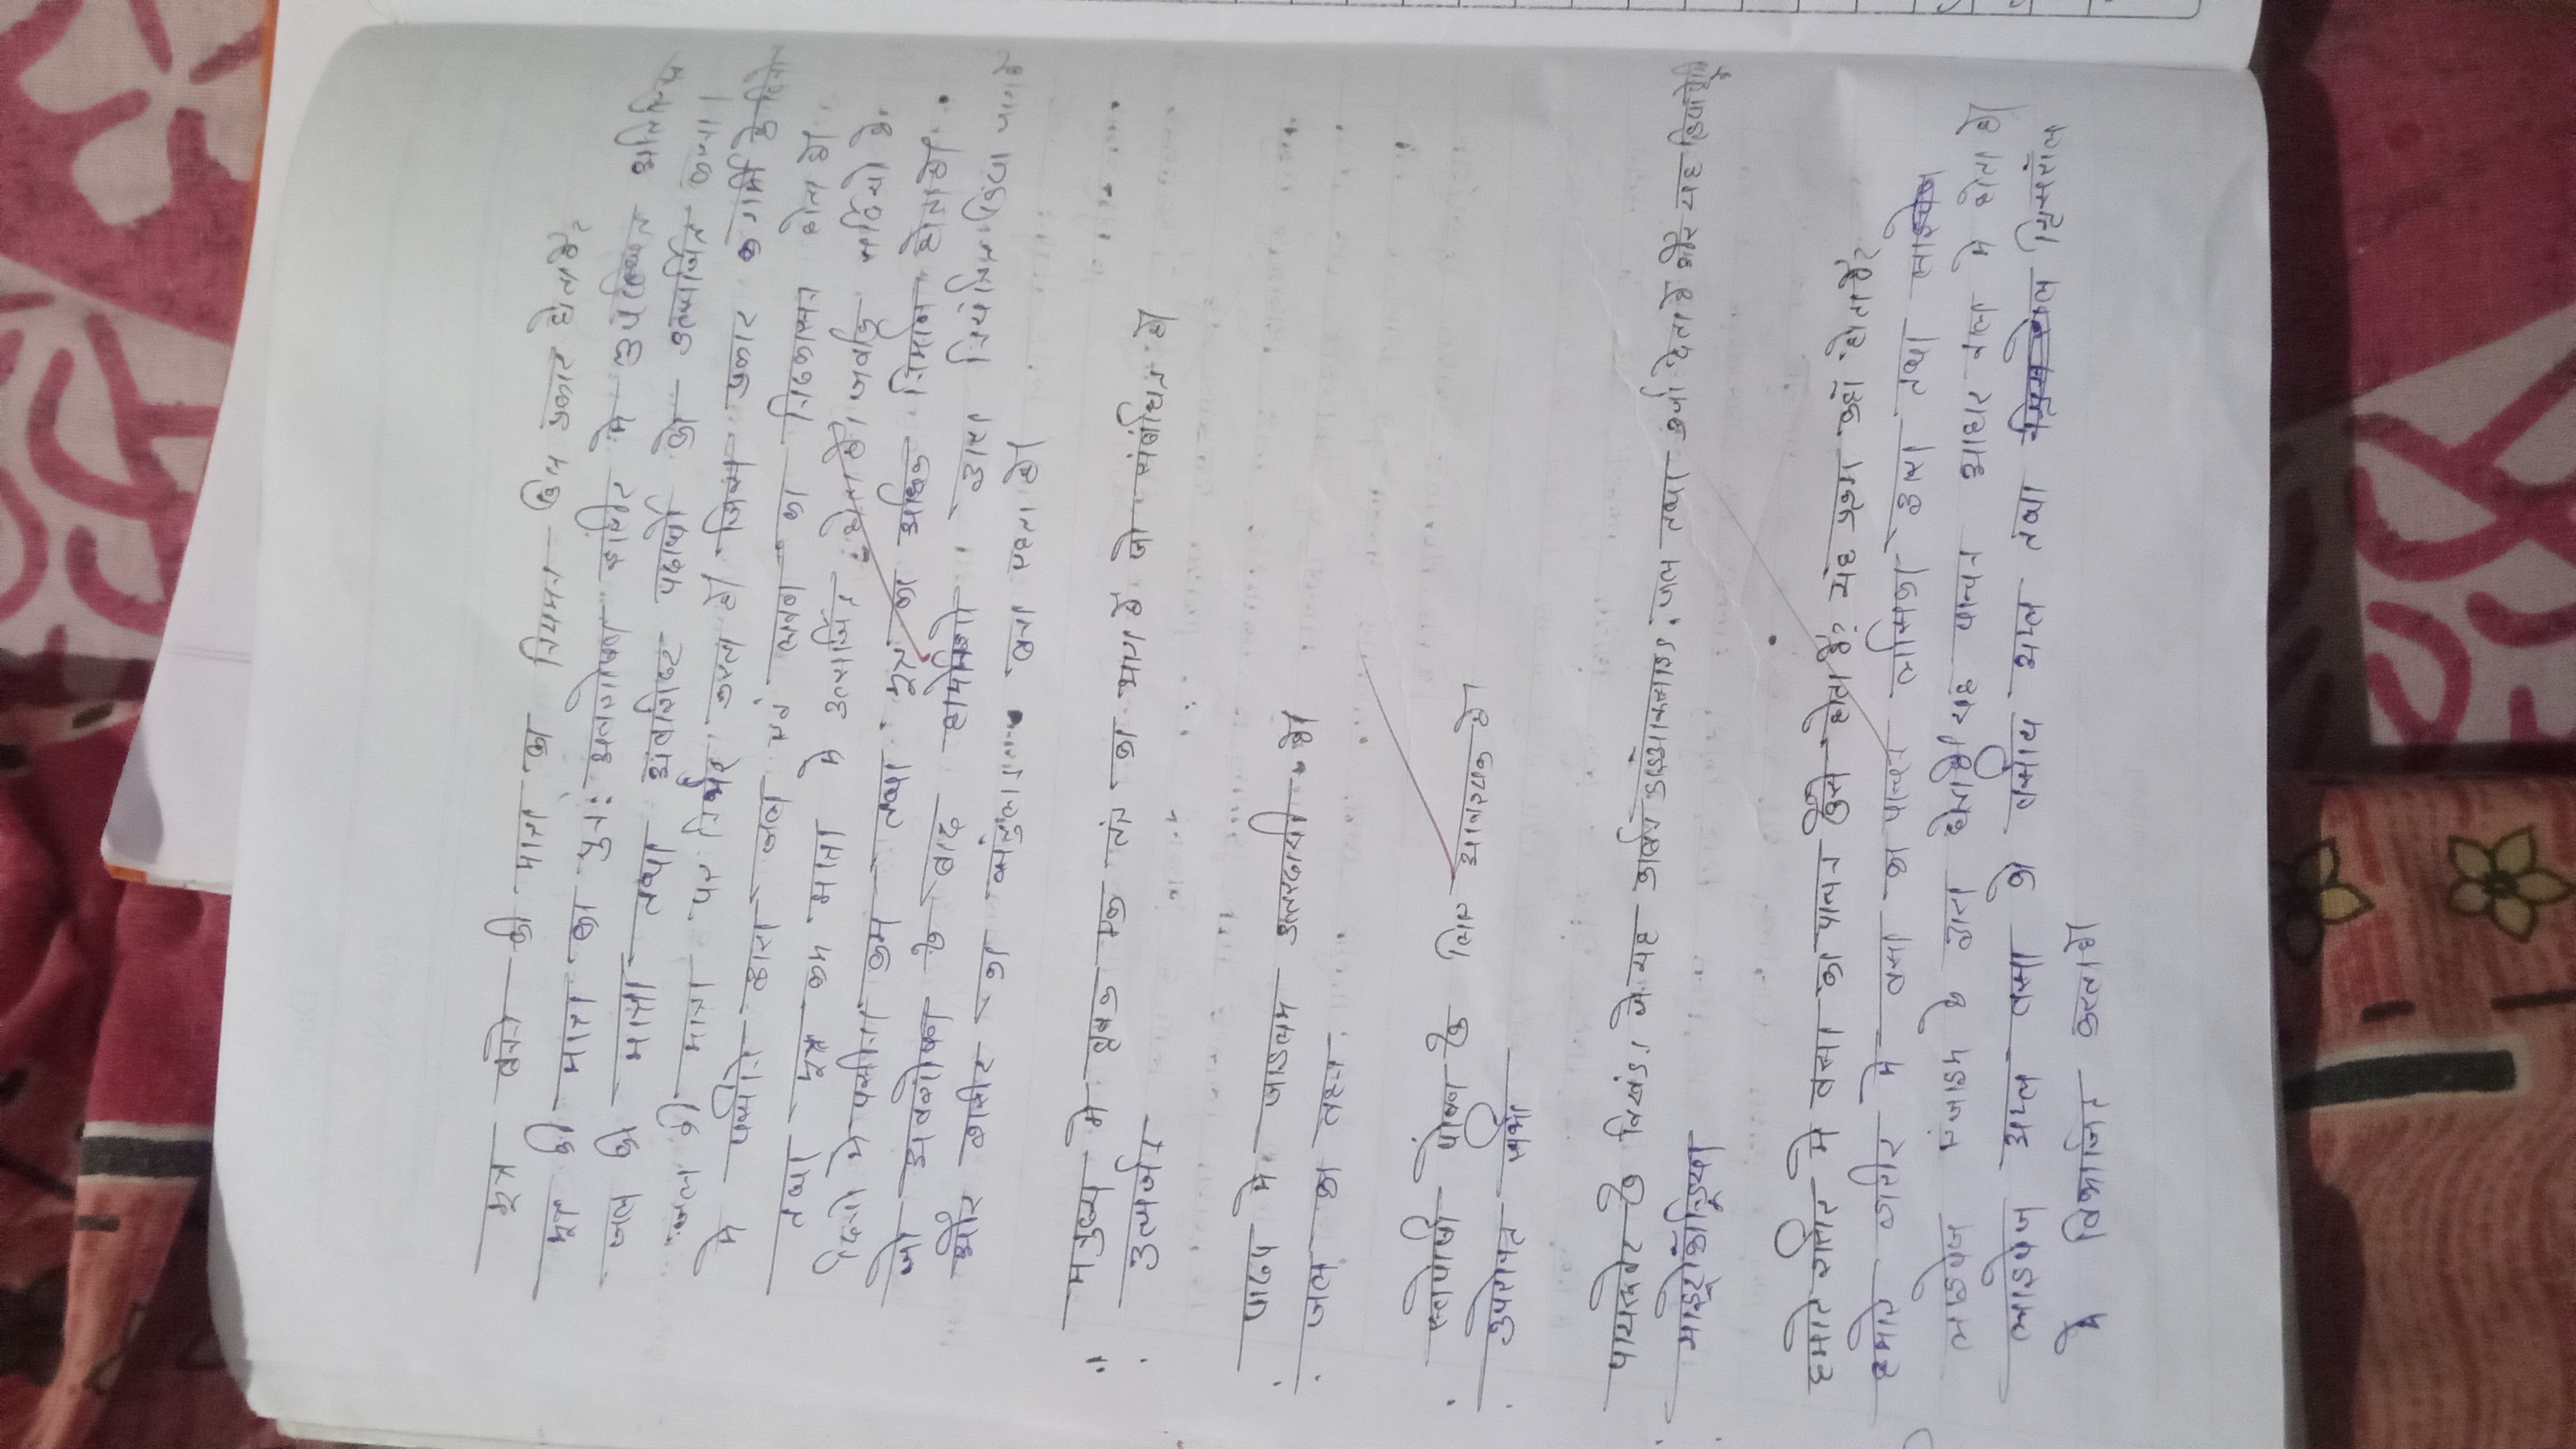 मूत्र बनने की मात्रा का नियमन किस प्रकार होता है?
मूत्र की मात्रा का पुनः अवशोषण शरीर में उपस्थित अतिरिक्त
जल की मात्रा तथा अवशिष्ट पदार्थो को उत्सर्जित करना।
जल की मात्रा पर निर्भर करता है। जिस प्रकार गर्मी के दिनो
मे पसीने द्वारा जल एवं लवण का निष्कासन होता है।
तथा मूत्र कम मात्रा मे उत्सर्जित होता है। जबकि सर्दियो के
दिनो मे पसीना कम तथा मूत्र का अधिक निर्माण होता है।
जो अवशोषण के बाद हार्मोनो द्वारा नियंत्रित किया जाता है
और शरीर का संतुलन बना रहता है।
मनुष्य मे वृक्क एक तंत्र का भाग है जो संबंधित है।
उत्सर्जन
पादप मे जाइलम उत्तरदायी है।
जल का वहन
स्वपोषी पोषण के लिए आवश्यक है।
उपरोक्त सभी
पायरूवेट के विखंडन से यह कार्बन डाईऑक्साइड, जल तथा ऊर्जा देता है और यह क्रिया होती है
माइट्रोकॉन्ड्रिया
हमारे शरीर मे वसा का पाचन कैसे होता है? यह प्रक्रम कहाँ होता है?
हमारे शरीर मे वसा का पाचन लाइपेज
लाइपेज एंजाइम के द्वारा होता है। यह पाचन आहार नाल मे होता है।
लाइपेज अम्ल वसा को वसीय अम्ल तथा ग्लिसरॉल
मे विभाजित करता है।